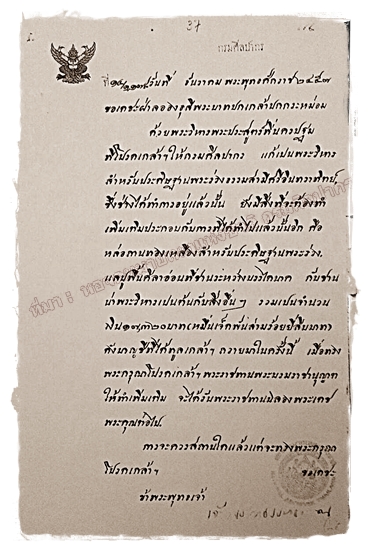 37
กรมศิลปากร
วันที่ ธันวาคม พระพุทธศักราช ๒๔๕๗
ขอเดชะฝ่าลอองธุลีพระบาทปกเกล้าปกกระหม่อม
ด้วยพระวิหารพระประสูตร์ที่นครปฐม
ที่โปรดเกล้าฯ ให้กรมศิลปากร แก้เปนพระวิหาร
สำหรับประดิษฐานพระร่วงธรรมสามีศรีอินทราทิตย์
ซึ่งช่างได้ทำการอยู่แล้วนั้น ยังมีสิ่งที่จะต้องทำ
เพิ่มเติมประกอบกับการที่ได้ทำไปแล้วนั้นอีก คือ
หล่อฐานทองเหลืองสำหรับประดิษฐานพระร่วง,
แลปูพื้นศิลาอ่อนที่ชานระหว่างบรรไดเทค กับชาน
น่าพระวิหารเปนต้นกับสิ่งอื่น ๆ รวมเปนจำนวน
เงิน ๑๗๓๒๐ บาท (หมื่นเจ็ดพันสามร้อยยี่สิบบาท)
ดังบาญชีที่ได้ทูลเกล้าฯ ถวายมาในครั้งนี้ เมื่อทรง
พระกรุณาโปรดเกล้าฯ พระราชทานพระบรมราชานุญาต
ให้ทำเพิ่มเติม จะได้รับพระราชทานฉลองพระเดช
พระคุณต่อไป.
การจะควรสถานใดแล้วแต่จะทรงพระกรุณา
โปรดเกล้าฯ ขอเดชะ
ข้าพระพุทธเจ้า
ที่มา :